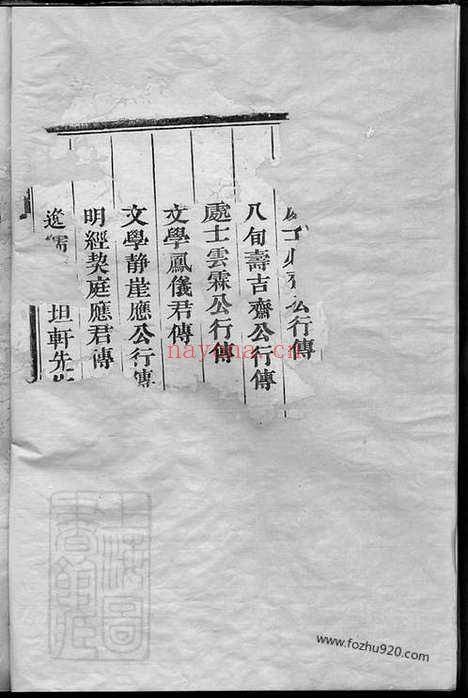 公行傳
八旬壽吉齋公行傳
處士雲霖公行傳
文學鳳儀君傳
文學靜崖應公行傳
明經契庭應君傳
逸
坦軒先生
nayona.cn
www.fozhu920.com